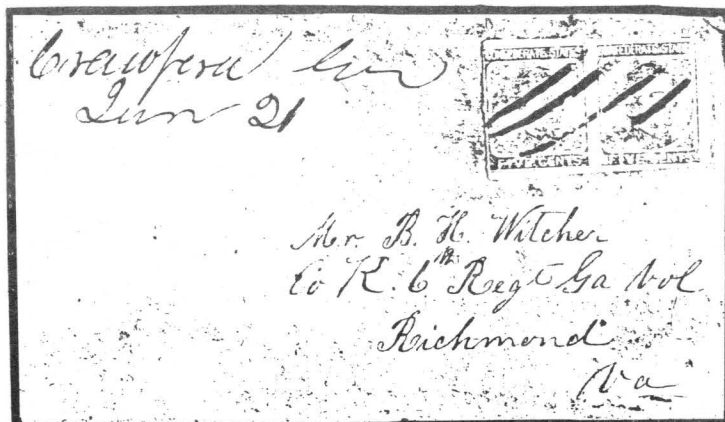 Crawford Geo
Jun 21
CONFEDERATE STATES CONFEDERATE STATES
FIVE CENTS FIVE CENTS
Mr. B. H. Witcher
Co K. 6th Regt Ga Vol
Richmond
Va